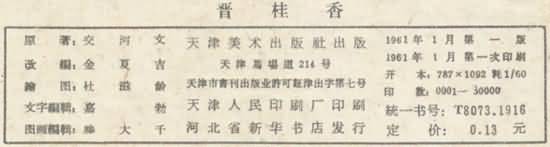 晋桂香
原著:交河文
改編:金夏吉
繪图:杜滋龄
文字編輯:嘉勃
图画編輯:大千
天津美术出版社出版
天津馬場道214号
天津市書刊出版业許可証津出字第七号
天津人民印刷厂印刷
河北省新华书店发行
1961年1月第一版
1961年1月第一次印刷
开本:787×1092 耗1/60
印数:0001—30000
統一书号:T8073.1916
定价:0.13元